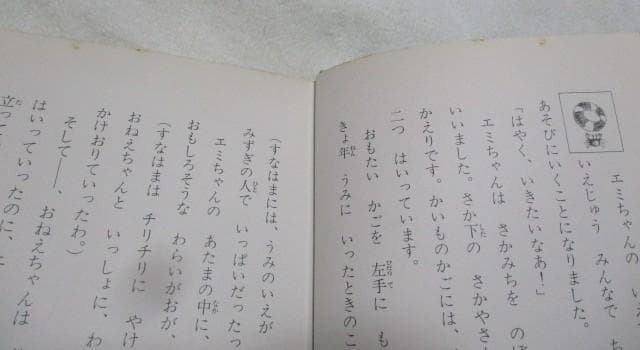 エミちゃんの い
いえじゅう みんなで ち
あそびにいくことになりました。
「はやく、いきたいなあ!」
エミちゃんは さかみちを の
いいました。さか下の さかやさ
かえりです。かいものかごには、
二つ はいっています。
おもたい かごを 左手に も
きょ年 うみに いったときのこ
(すなはまには、うみのいえが
みずぎの人で いっぱいだったっ
エミちゃんの あたまの中に、
おもしろそうな わらいがおが、
(すなはまは チリチリに やけ
おねえちゃんと いっしょに、わ
かけおりていったわ。)
そして――、おねえちゃんは
はいっていったのに、
立って